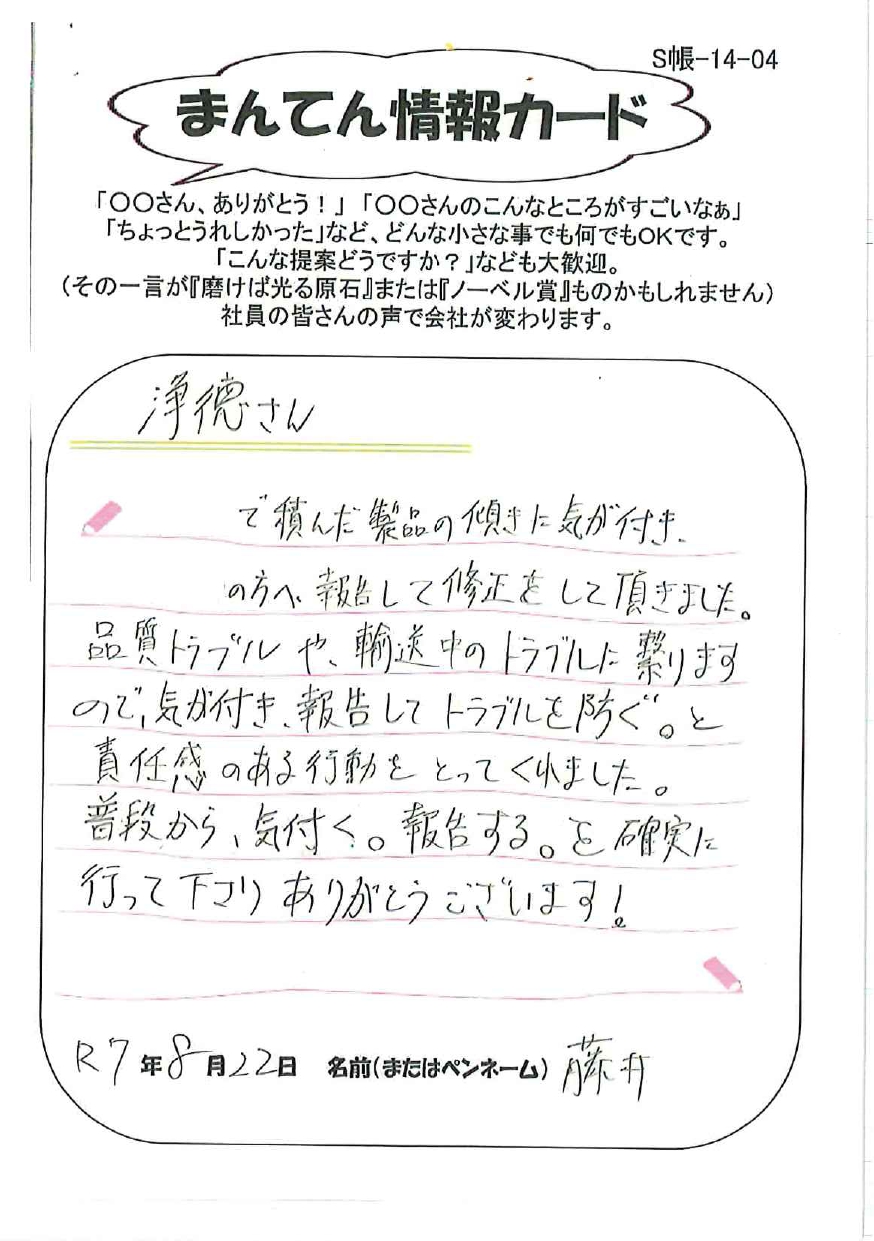 S帳-14-04
まんてん情報カード
「〇〇さん、ありがとう！」「〇〇さんのこんなところがすごいなぁ」
「ちょっとうれしかった」など、どんな小さな事でも何でもOKです。
「こんな提案どうですか？」なども大歓迎。
（その一言が『磨けば光る原石』または『ノーベル賞』ものかもしれません）
社員の皆さんの声で会社が変わります。
浄徳さん
で積んだ製品の傾きに気が付き、
の方へ、報告して修正をして頂きました。
品質トラブルや、輸送中のトラブルに繋ります
ので、気が付き、報告してトラブルを防ぐ。と
責任感のある行動をとってくれました。
普段から、気付く。報告する。を確実に
行って下さりありがとうございます!
R7年8月22日 名前（またはペンネーム）藤井